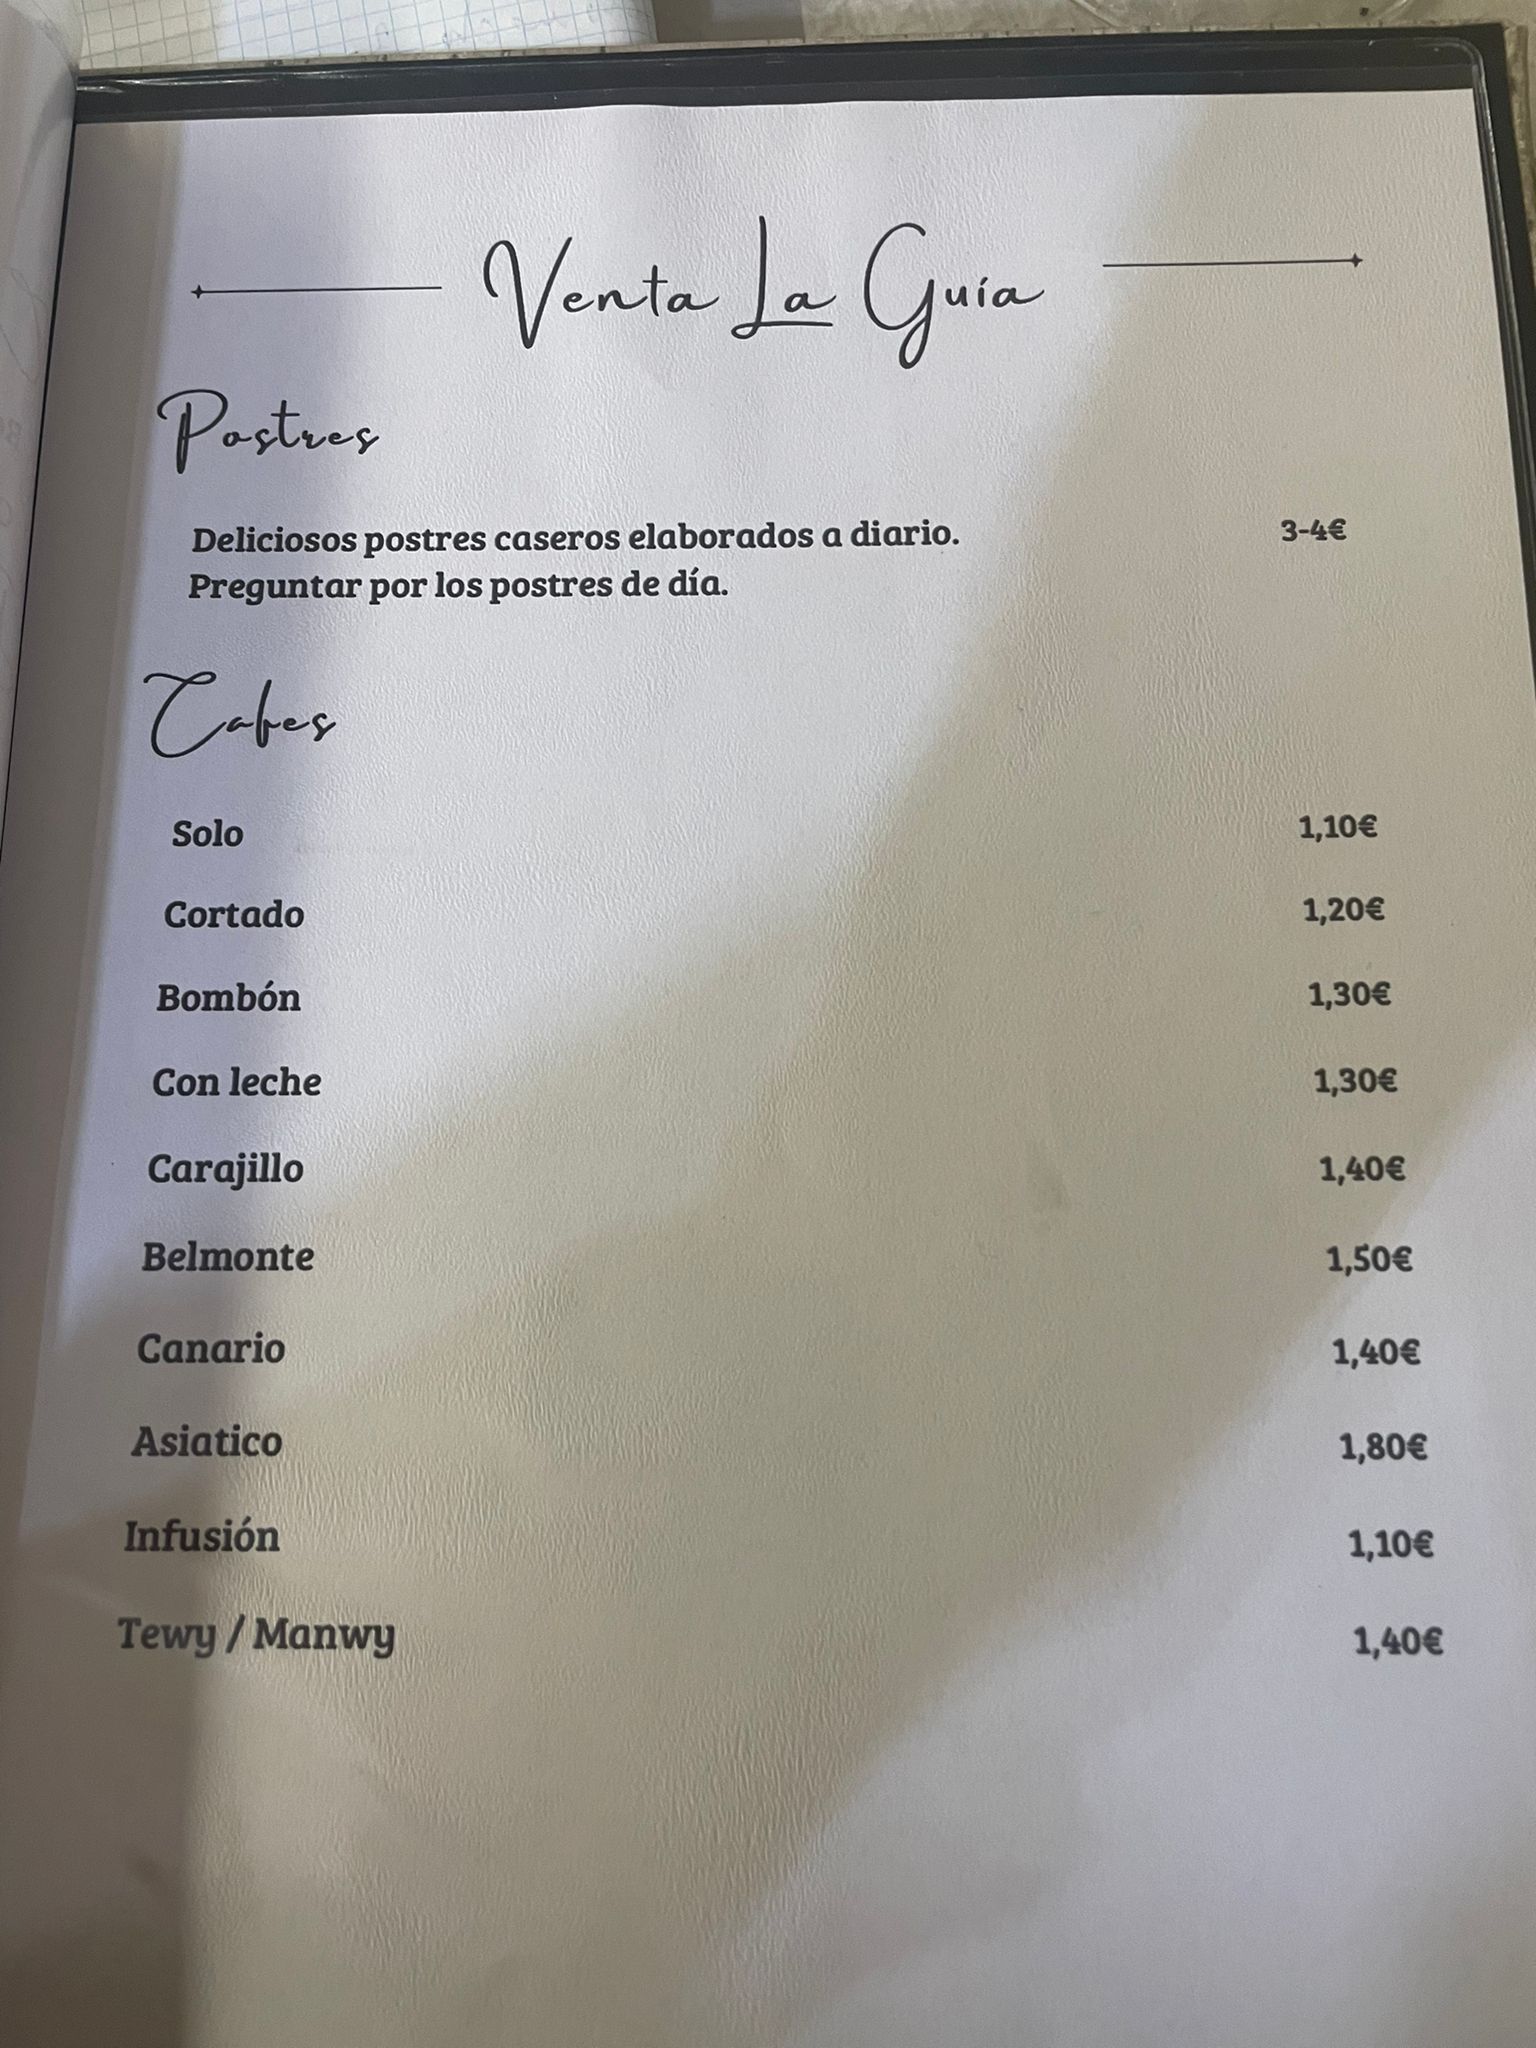 Venta La Guía
Postres
Deliciosos postres caseros elaborados a diario. 3-4€
Preguntar por los postres de día.
Cafes
Solo 1,10€
Cortado 1,20€
Bombón 1,30€
Con leche 1,30€
Carajillo 1,40€
Belmonte 1,50€
Canario 1,40€
Asiatico 1,80€
Infusión 1,10€
Tewy / Manwy 1,40€